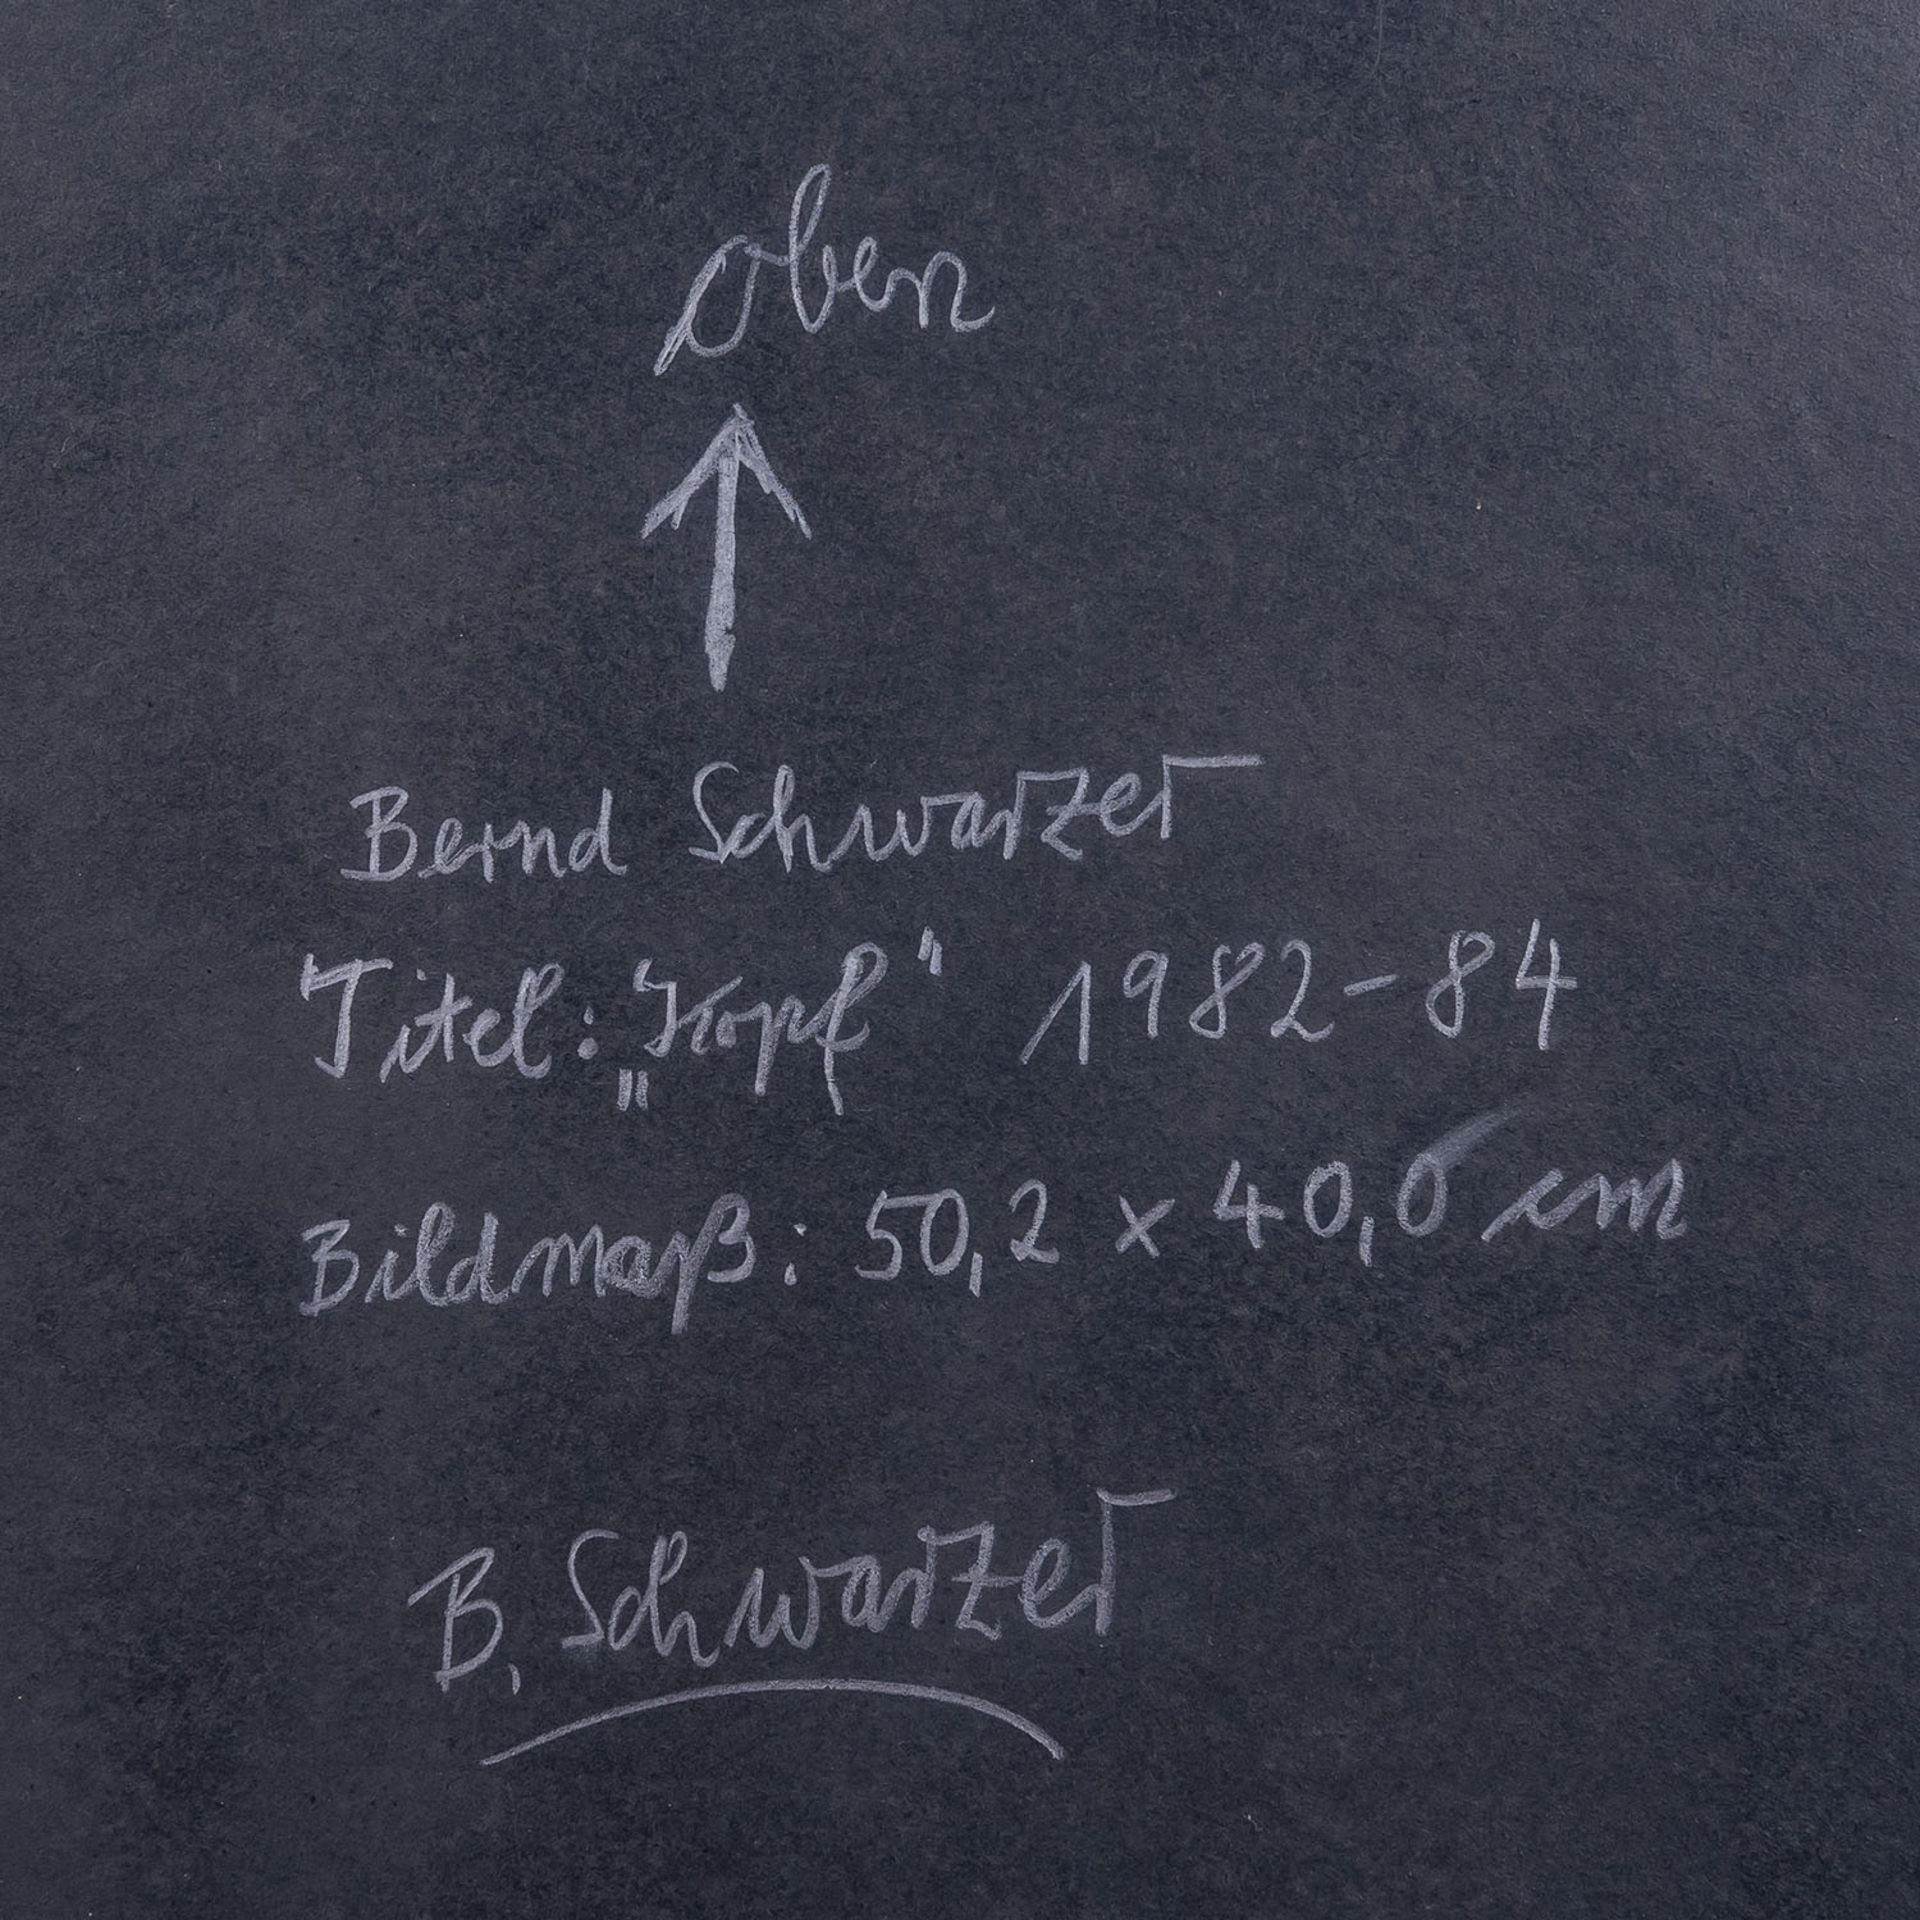 oben
Bernd Schwarzer
Titel: „Kopf“ 1982-84
Bildmaß: 50,2 x 40,6 cm
B. Schwarzer